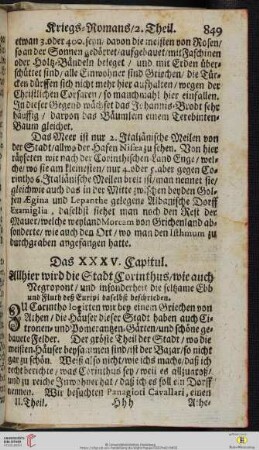 Kriegs-Romans/2. Theil. 849
etwan 3. oder 400. seyn/ davon die meisten von Rosen/
so an der Sonnen gedöret/ aufgebauet/ mit Faschinen
oder Holtz-Bündeln beleget/ und mit Erden über-
schüttet sind/ alle Einwohner sind Griechen/ die Tür-
cken dürffen sich nicht mehr hier aufhalten/ wegen der
Christlichen Corsaren/ so manchmahl hier einfallen.
In dieser Gegend wächset das Johannis-Brodt sehr
häuffig/ davon das Bäumlein einem Terebinten-
Baum gleichet.
Das Meer ist nur 2. Italiänische Meilen von
der Stadt/ allwo der Hafen zu sehen. Von hier
räyseten wir nach der Corinthischen Land Enge/ wel-
che/ wo sie am kleinesten/ nur 4. oder 5. aber gegen Co-
rintho 6. Italiänische Meilen breit ist/ man nennet sie/
gleichwie auch das in der Mitte zwischen beyden Gol-
fen Ægina und Lepanthe gelegene Albanische Dorff
Examiglia, daselbst siehet man noch den Rest der
Mauer/ welche weyland Moream von Griechenland ab-
sonderte/ wie auch den Ort/ wo man den Isthmum zu
durchgraben angefangen hatte.
Das XXXV. Capitul.
Allhier wird die Stadt Corinthus/ wie auch
Negropont/ und insonderheit die seltzame Ebb
und Fluth deß Euripi daselbst beschrieben.
Zu Corintho logirten wir bey einem Griechen von
Athen/ die Häuser dieser Stadt haben auch Ci-
tronen- und Pomerantzen-Gärten/ und schöne ge-
bauete Felder. Der gröste Theil der Stadt/ wo die
meisten Häuser beysammen sind/ ist der Bazar/ so nicht
gar zu schön. Weiß also nicht/ wie ichs mache/ daß ich
recht berichte/ was Corinthus sey/ weil es allzugroß/
und zu reiche Inwohner hat/ daß ich es soll ein Dorff
nennen. Wir besuchten Panagioti Cavallari, einen
II. Theil. Hhh Athe-